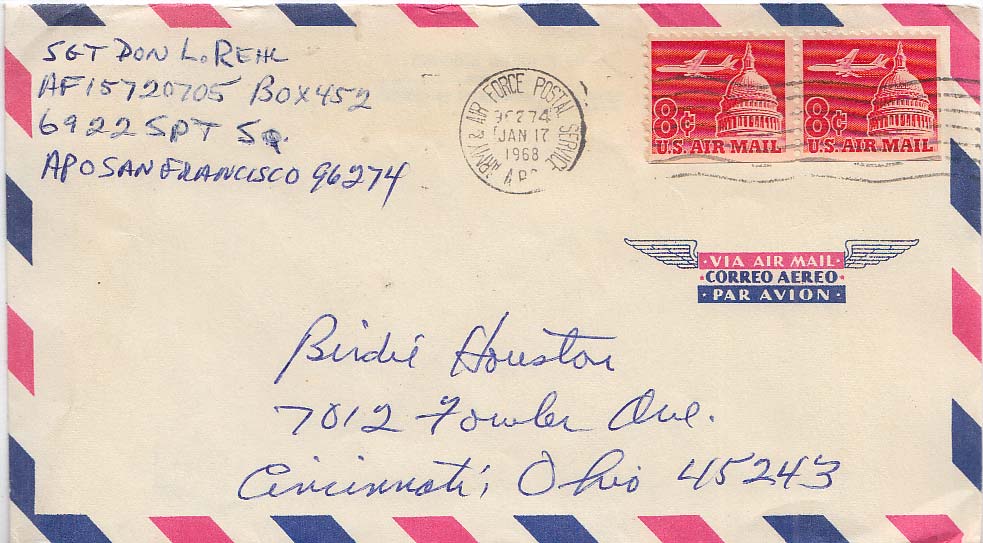 SGT DON L. REHL
AF15720705 BOX 452
6922 SPT SQ.
APO SAN FRANCISCO 96274
ARMY & AIR FORCE POSTAL SERVICE
96274
JAN 17
1968
8¢
U.S. AIR MAIL
8¢
U.S. AIR MAIL
·VIA AIR MAIL·
·CORREO AEREO·
·PAR AVION·
Birdie Houston
7012 Fowler Ave.
Cincinnati, Ohio 45243